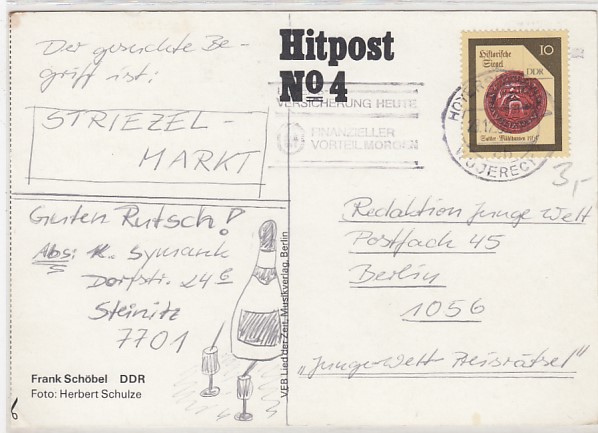 Der gesuchte Be-
griff ist:
STRIEZEL-
MARKT
Guten Rutsch!
Abs: K. Symank
Dorfstr. 24 G
Steinitz
7701
Frank Schöbel DDR
Foto: Herbert Schulze
6
Hitpost
No 4
VERSICHERUNG HEUTE
FINANZIELLER
VORTEIL MORGEN
VEB Lied der Zeit, Musikverlag, Berlin
Historische
Siegel
10
DDR
HOYERS
WOJERECY
3,-
Redaktion Junge Welt
Postfach 45
Berlin
1056
„Junge-Welt Preisrätsel"